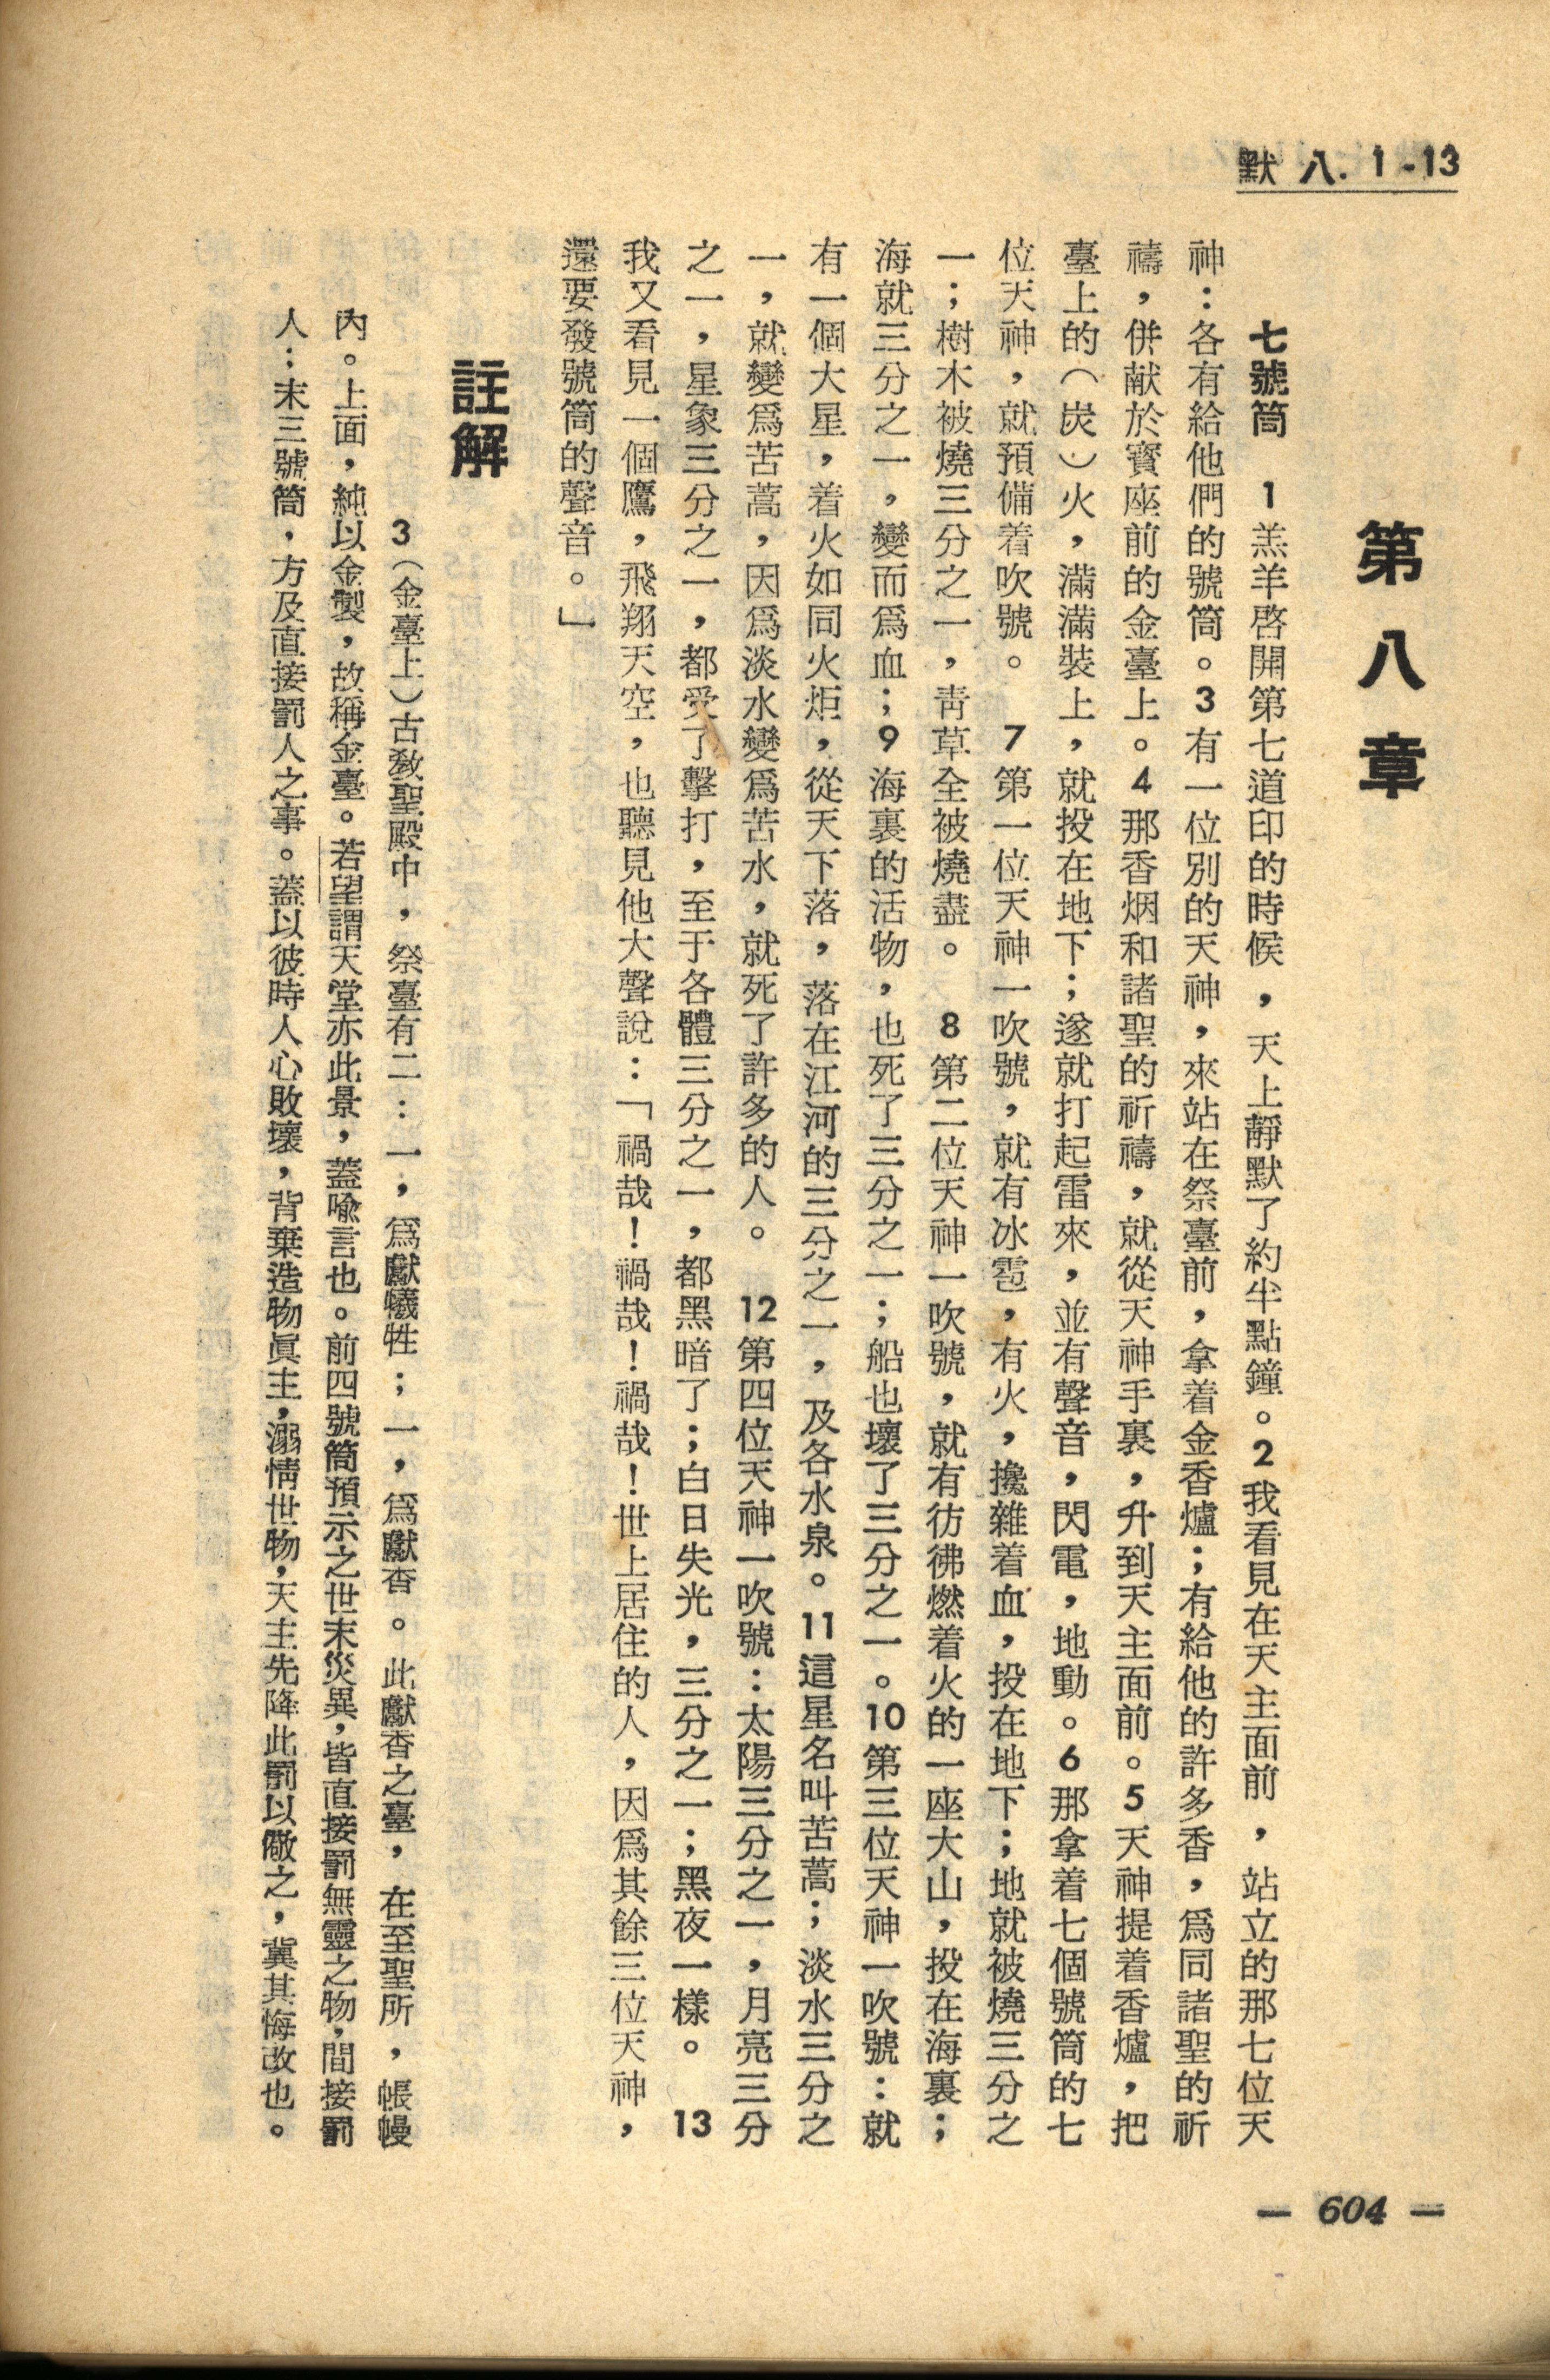 默 八. 1-13
第八章
七號筒　1羔羊啓開第七道印的時候，天上靜默了約半點鐘。2我看見在天主面前，站立的那七位天
神：各有給他們的號筒。3有一位別的天神，來站在祭臺前，拿着金香爐；有給他的許多香，爲同諸聖的祈
禱，併献於寶座前的金臺上。4那香烟和諸聖的祈禱，就從天神手裏，升到天主面前。5天神提着香爐，把
臺上的（炭）火，滿滿裝上，就投在地下；遂就打起雷來，並有聲音，閃電，地動。6那拿着七個號筒的七
位天神，就預備着吹號。　7第一位天神一吹號，就有冰雹，有火，攙雜着血，投在地下；地就被燒三分之
一；樹木被燒三分之一，靑草全被燒盡。　8第二位天神一吹號，就有彷彿燃着火的一座大山，投在海裏；
海就三分之一，變而爲血；9海裏的活物，也死了三分之一；船也壞了三分之一。10第三位天神一吹號：就
有一個大星，着火如同火炬，從天下落，落在江河的三分之一，及各水泉。11這星名叫苦蒿；淡水三分之
一，就變爲苦蒿，因爲淡水變爲苦水，就死了許多的人。　12第四位天神一吹號：太陽三分之一，月亮三分
之一，星象三分之一，都受了擊打，至于各體三分之一，都黑暗了；白日失光，三分之一；黑夜一樣。　13
我又看見一個鷹，飛翔天空，也聽見他大聲說：「禍哉！禍哉！禍哉！世上居住的人，因爲其餘三位天神，
還要發號筒的聲音。」
註解
3（金臺上）古敎聖殿中，祭臺有二：一，爲獻犧牲；一，爲獻香。此獻香之臺，在至聖所，帳幔
內。上面，純以金製，故稱金臺。若望謂天堂亦此景，蓋喩言也。前四號筒預示之世末災異，皆直接罰無靈之物，間接罰
人：末三號筒，方及直接罰人之事。蓋以彼時人心敗壞，背棄造物眞主，溺情世物，天主先降此罰以儆之，冀其悔改也。
— 604 —